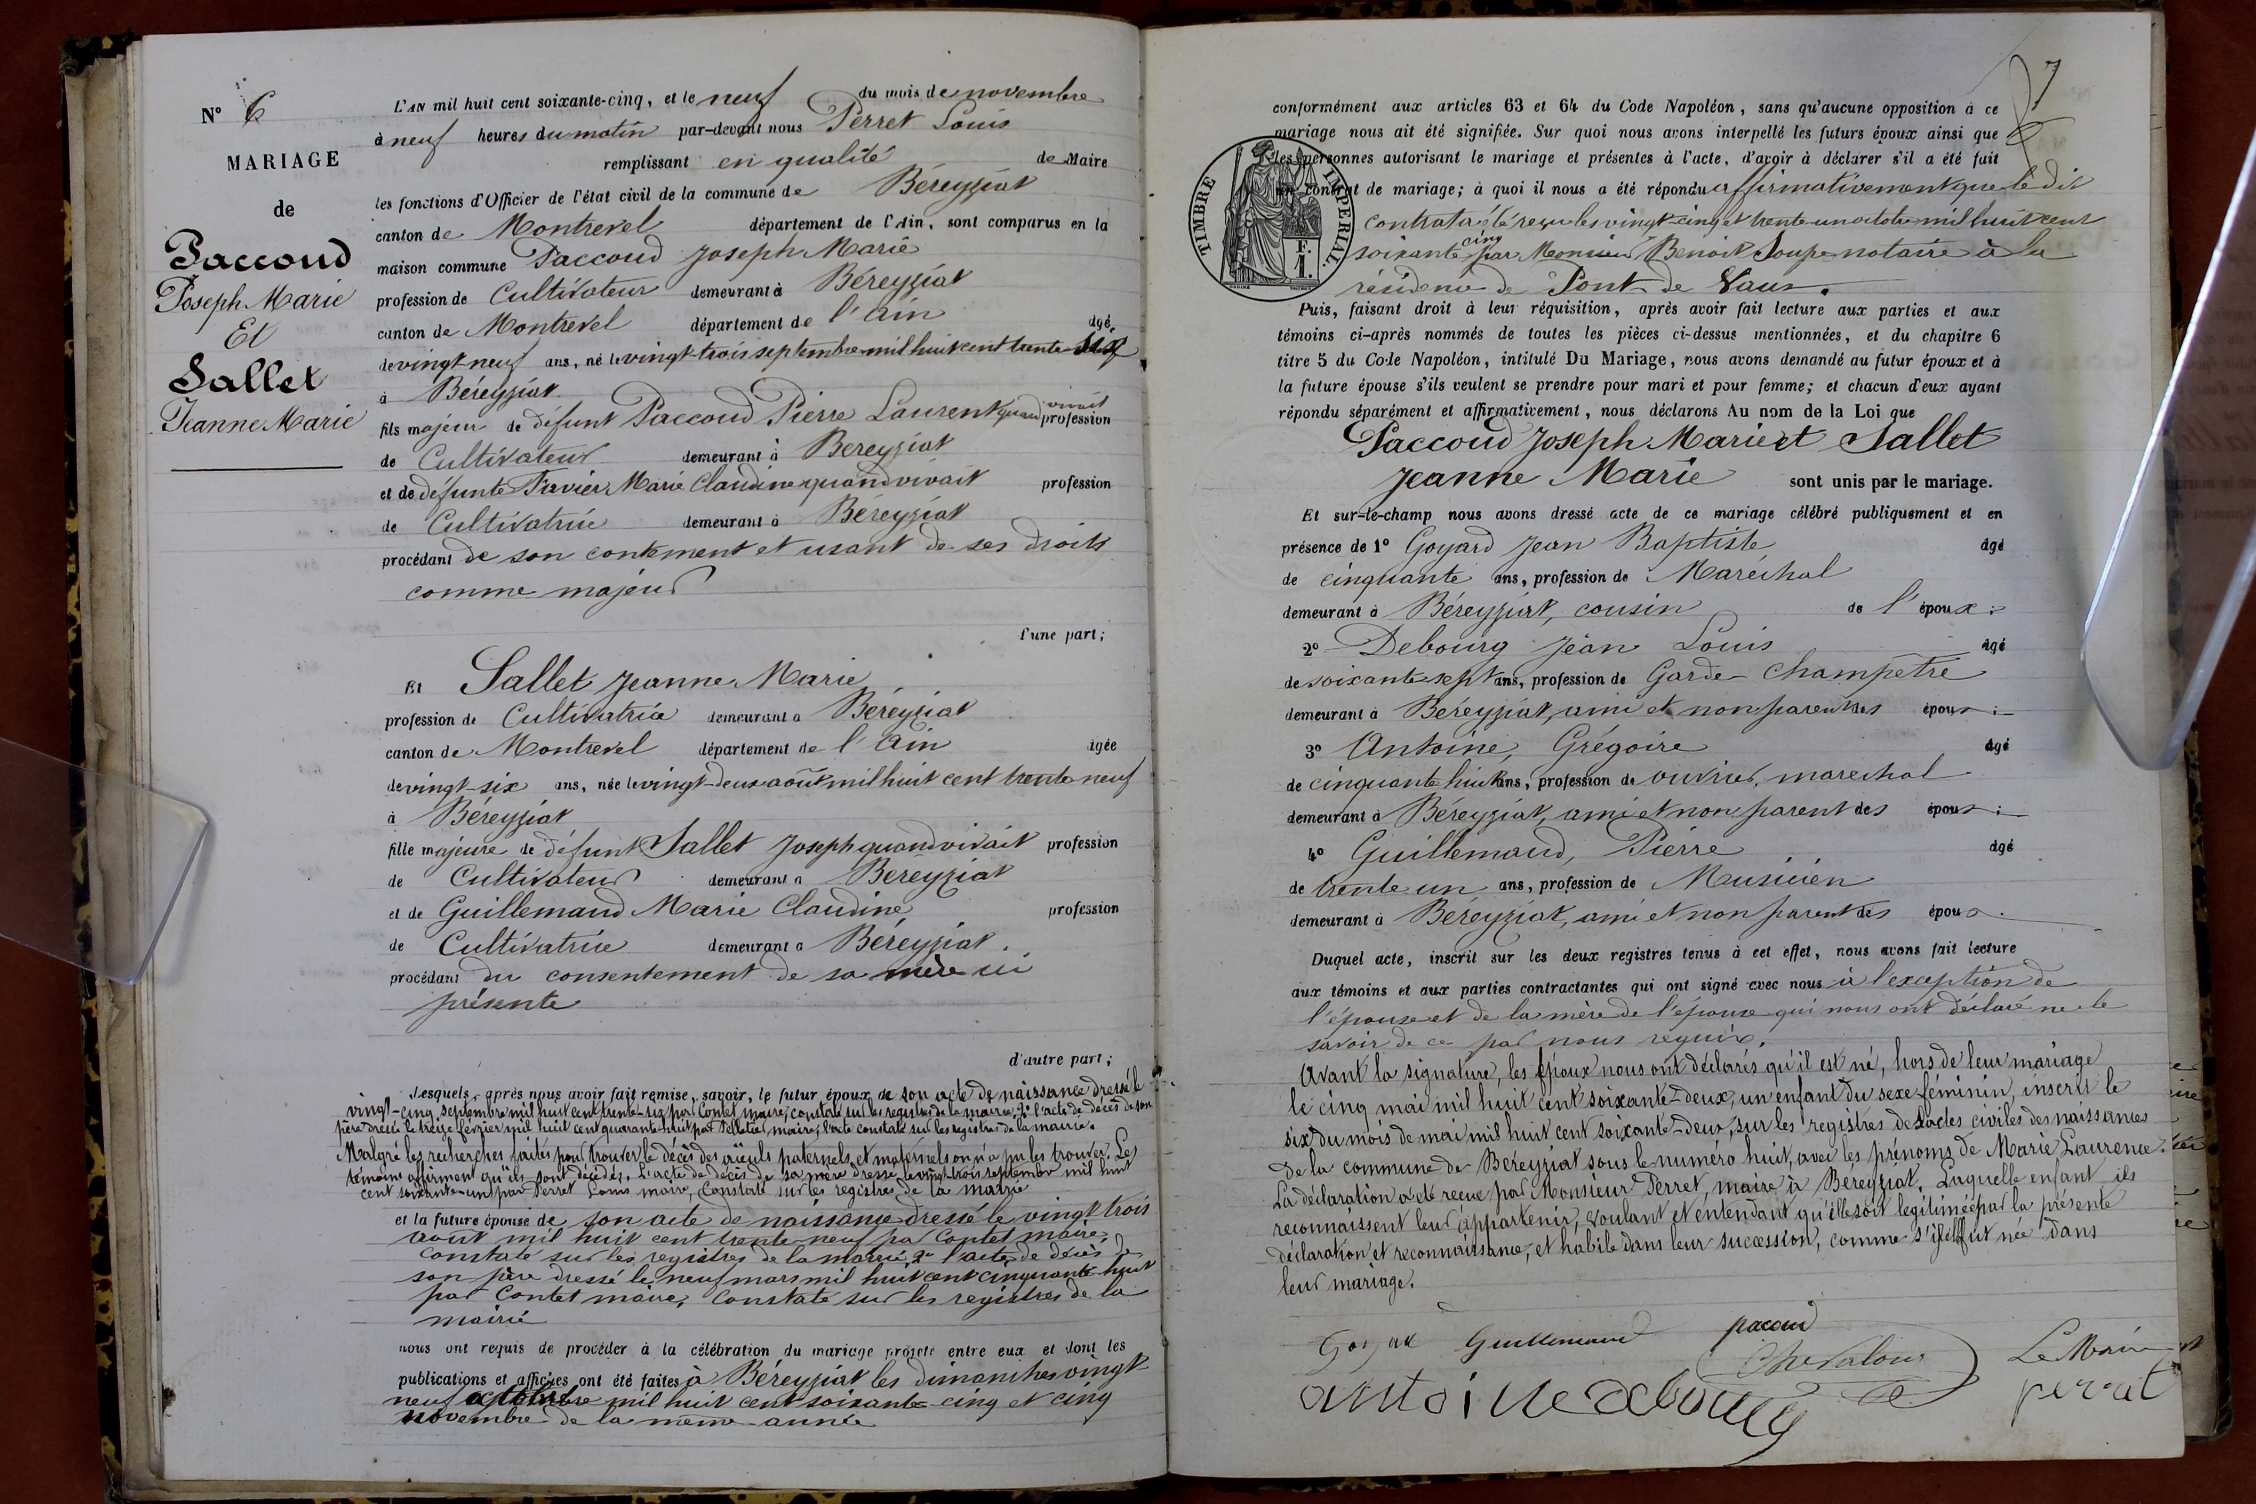 N° 6
MARIAGE
de
Paccoud
Joseph Marie
Et
Sallet
Jeanne Marie
L'AN mil huit cent soixante-cinq, et le neuf du mois de novembre
à neuf heures du matin par-devant nous Perret Louis
remplissant en qualité de Maire
les fonctions d'Officier de l'état civil de la commune de Béreyziat
canton de Montrevel département de l'Ain, sont comparus en la
maison commune Paccoud Joseph Marie
profession de Cultivateur demeurant à Béreyziat
canton de Montrevel département de l'Ain âgé
de vingt-neuf ans, né le vingt-trois septembre mil huit cent trente-six
à Béreyziat
fils majeur de défunt Paccoud Pierre Laurent quand vivait profession
de Cultivateur demeurant à Béreyziat
et de défunte Favier Marie Claudine quand vivait profession
de Cultivatrice demeurant à Béreyziat
procédant de son contement et usant de ses droits
comme majeur
d'une part;
Et Sallet Jeanne Marie
profession de Cultivatrice demeurant à Béreyziat
canton de Montrevel département de l'Ain âgée
de vingt-six ans, née le vingt-deux août mil huit cent trente neuf
à Béreyziat
fille majeure de défunt Sallet Joseph quand vivait profession
de Cultivateur demeurant à Béreyziat
et de Guillemaud Marie Claudine profession
de Cultivatrice demeurant à Béreyziat.
procédant du consentement de sa mère ici
présente
d'autre part;
Lesquels, après nous avoir fait remise, savoir, le futur époux de son acte de naissance dressé le
vingt-cinq septembre mil huit cent trente-six par Contet maire, constaté sur les registres de la mairie, 2° l'acte de décès de son
père dressé le treize février mil huit cent quarante-huit par Pelletier maire, l'acte constaté sur les registres de la mairie.
Malgré les recherches faites pour trouver le décès des aïeuls paternels et maternels on n'a pu les trouver. Les
témoins affirment qu'ils sont décédés. L'acte de décès de sa mère dressé le vingt-trois septembre mil huit
cent soixante-un par Perret Louis maire, Constaté sur les registres de la mairie
et la future épouse de son acte de naissance dressé le vingt trois
août mil huit cent trente neuf par Contet maire,
constaté sur les registres de la mairie, 2° l'acte de décès de
son père dressé le neuf mars mil huit cent cinquante-huit
par Contet maire, Constaté sur les registres de la
mairie
nous ont requis de procéder à la célébration du mariage projeté entre eux et dont les
publications et affiches ont été faites à Béreyziat les dimanches vingt
neuf octobre mil huit cent soixante-cinq et cinq
novembre de la même année
7
conformément aux articles 63 et 64 du Code Napoléon, sans qu'aucune opposition à ce
mariage nous ait été signifiée. Sur quoi nous avons interpellé les futurs époux ainsi que
les personnes autorisant le mariage et présentes à l'acte, d'avoir à déclarer s'il a été fait
un contrat de mariage; à quoi il nous a été répondu affirmativement que le dit
contrat a été reçu les vingt-cinq et trente-un octobre mil huit cent
soixante cinq par Monsieur Benoit Soupe notaire à la
résidence de Pont de Vaux.
TIMBRE IMPERIAL
F.
1.
Puis, faisant droit à leur réquisition, après avoir fait lecture aux parties et aux
témoins ci-après nommés de toutes les pièces ci-dessus mentionnées, et du chapitre 6
titre 5 du Code Napoléon, intitulé Du Mariage, nous avons demandé au futur époux et à
la future épouse s'ils veulent se prendre pour mari et pour femme; et chacun d'eux ayant
répondu séparément et affirmativement, nous déclarons Au nom de la Loi que
Paccoud Joseph Marie et Sallet
Jeanne Marie sont unis par le mariage.
Et sur-le-champ nous avons dressé acte de ce mariage célébré publiquement et en
présence de 1° Goyard Jean Baptiste âgé
de cinquante ans, profession de Maréchal
demeurant à Béreyziat, cousin de l'époux;
2° Debourg Jean Louis âgé
de soixante-sept ans, profession de Garde-champêtre
demeurant à Béreyziat, ami et non parent des époux;
3° Antoine, Grégoire âgé
de cinquante huit ans, profession de ouvrier maréchal
demeurant à Béreyziat, ami et non parent des époux;
4° Guillemaud, Pierre âgé
de trente un ans, profession de Musicien
demeurant à Béreyziat, ami et non parent des époux.
Duquel acte, inscrit sur les deux registres tenus à cet effet, nous avons fait lecture
aux témoins et aux parties contractantes qui ont signé avec nous à l'exception de
l'épouse et de la mère de l'épouse qui nous ont déclaré ne le
savoir de ce par nous requis.
Avant la signature, les époux nous ont déclarés qu'il est né, hors de leur mariage
le cinq mai mil huit cent soixante-deux, un enfant du sexe féminin, inscrit le
six du mois de mai mil huit cent soixante-deux, sur les registres des actes civiles des naissances
de la commune de Béreyziat sous le numéro huit, avec les prénoms de Marie Laurence.
La déclaration a été reçue par Monsieur Perret, maire à Béreyziat. Laquelle enfant ils
reconnaissent leur appartenir, voulant et entendant qu'elle soit legitimée par la présente
déclaration et reconnaissance, et habile dans leur succession, comme s'il fut née dans
leur mariage.
Goyard Guillemaud pacoud
Chevalour Le Maire
antoine debourg perret